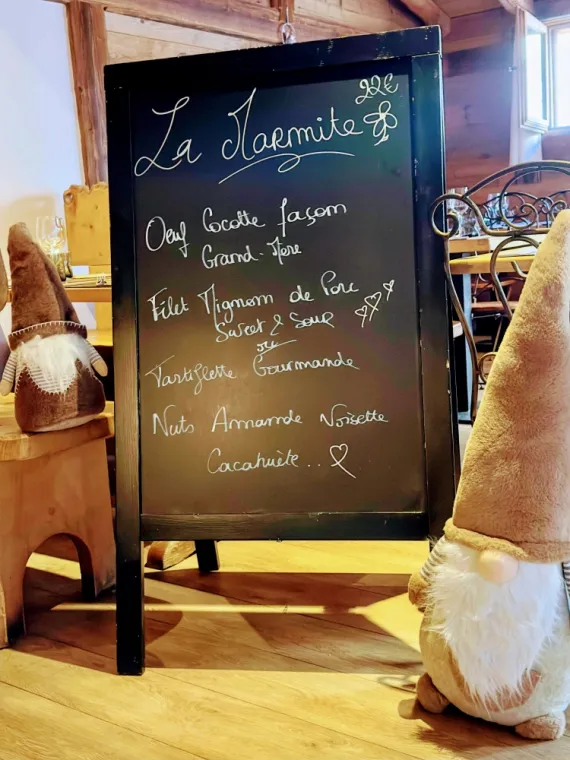 22€
La Marmite
Oeuf Cocotte façon
Grand-Mère
Filet Mignon de Porc
Sweet & Sour
ou
Tartiflette Gourmande
Nuts Amande Noisette
Cacahuète...